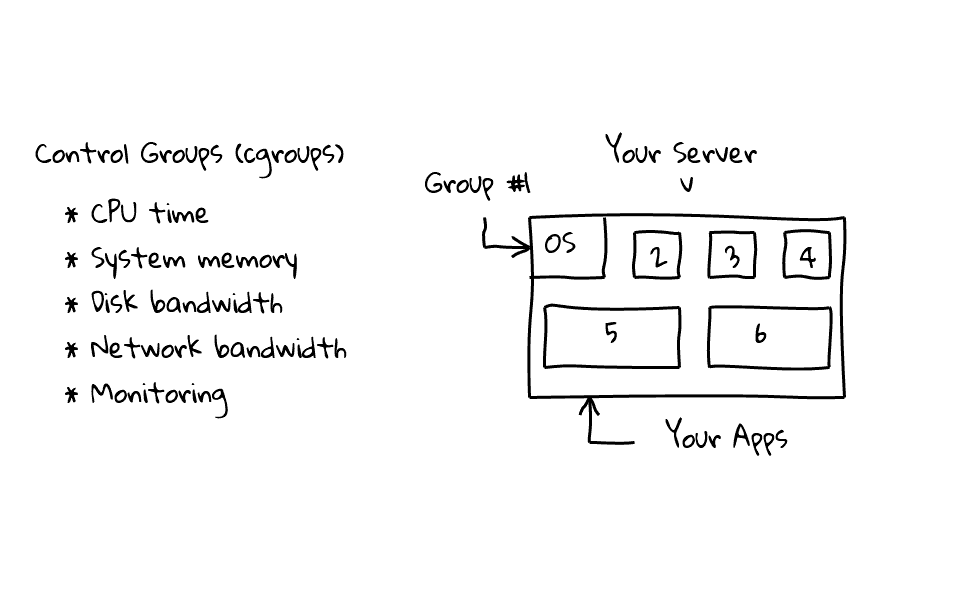 Control Groups (cgroups)
* CPU time
* System memory
* Disk bandwidth
* Network bandwidth
* Monitoring
Your Server
v
Group #1
OS
2
3
4
5
6
Your Apps